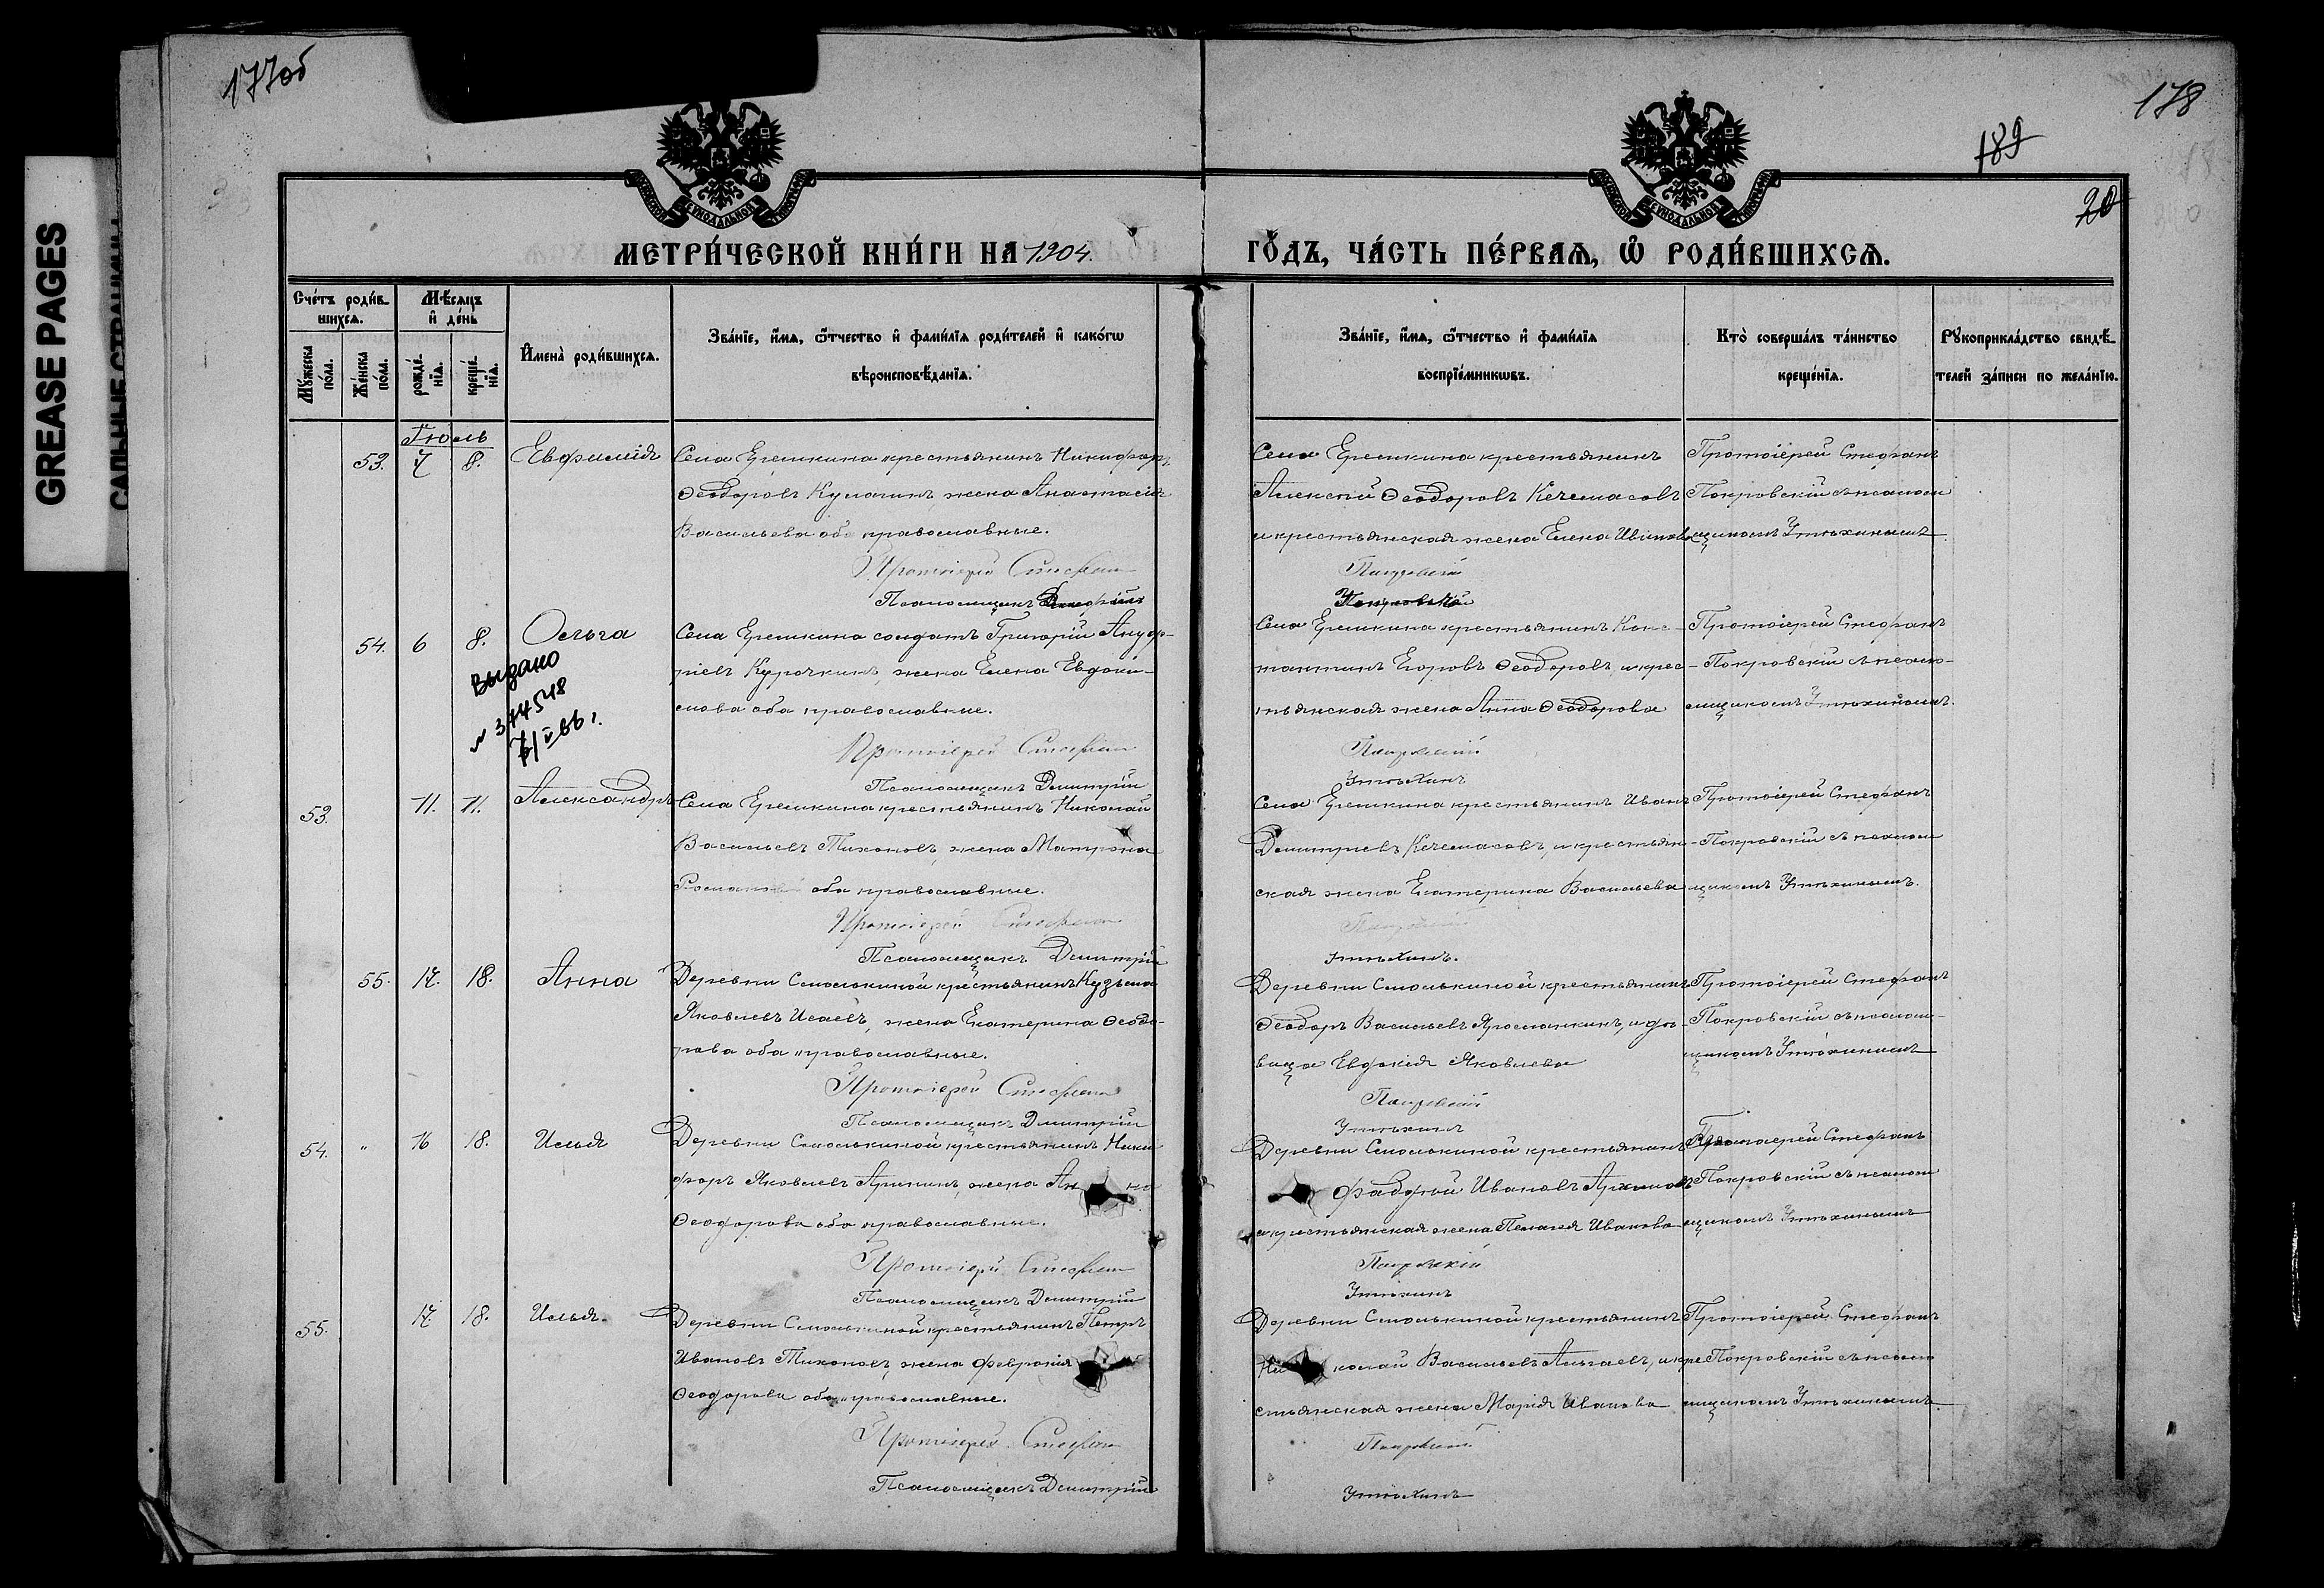 177об
178
189
20
GREASE PAGES
САЛЬНЫЕ СТРАНИЦЫ
МЕТРИ́ЧЕСКОЙ КНИ́ГИ НА 1904.
ГО́ДЪ, ЧА́СТЬ ПЕ́РВАѦ, Ѡ҆ РОДИ́ВШИХСѦ.
Сче́тъ роди́в-
шихсѧ.
Мꙋ́жеска
по́ла.
Же́нска
по́ла.
Мѣ́сѧцъ
и҆ де́нь
рожде́-
нїѧ.
креще́-
нїѧ.
И҆мена̀ роди́вшихсѧ.
Зва́нїе, и҆́мѧ, ѻ҆́тчество и҆ фами́лїѧ роди́телей и҆ како́гѡ
вѣроисповѣ́данїѧ.
Зва́нїе, и҆́мѧ, ѻ҆́тчество и҆ фами́лїѧ
воспрїе́мникѡвъ.
Кто̀ соверша́лъ та́инство
креще́нїѧ.
Рꙋкоприкла́дство свидѣ́-
телей за́писи по жела́нїю.
Іюль
53. 7 8. Евфимія
Села Еремкина крестьянинъ Никифоръ
Ѳеодоровъ Кулагинъ, жена Анастасія
Васильева оба православные.
Протоіерей Стефанъ
Псаломщикъ
Села Еремкина крестьянинъ
Алексѣй Ѳеодоровъ Кечемасовъ
и крестьянская жена Елена Иванова
Покровскій
Протоіерей Стефанъ
Покровскій съ псалом
щикомъ Утѣхинымъ
54. 6 8. Ольга
выдано
Села Еремкина солдатъ Григорій
Курочкинъ, жена Елена Евдоки-
мова оба православные.
Протоіерей Стефанъ
Псаломщикъ Димитрій
Села Еремкина крестьянинъ Конс-
тантинъ Егоровъ Ѳеодоровъ, и крес-
тьянская жена Анна Ѳеодорова
Покровскій
Утѣхинъ
Протоіерей Стефанъ
Покровскій съ псало-
мщикомъ Утѣхинымъ.
53. 11. 11. Александръ
Села Еремкина крестьянинъ Николай
Васильевъ Тихоновъ, жена Матрона
Романова оба православные.
Протоіерей Стефанъ
Псаломщикъ Димитрій
Села Еремкина крестьянинъ Иванъ
Димитріевъ Кечемасовъ, и крестьян-
ская жена Екатерина Васильева
Покровскій
Утѣхинъ.
Протоіерей Стефанъ
Покровскій съ псалом
щикомъ Утѣхинымъ.
55. 17. 18. Анна
Деревни Смолькиной крестьянинъ Кузьма
Яковлевъ Исаевъ, жена Екатерина Ѳеодо-
рова оба православные.
Протоіерей Стефанъ
Псаломщикъ Димитрій
Деревни Смолькиной крестьянинъ
Ѳеодоръ Васильевъ Ярославкинъ, и дѣ-
вица Евдокія Яковлева
Покровскій
Утѣхинъ
Протоіерей Стефанъ
Покровскій съ псалом-
щикомъ Утѣхинымъ
54. " 16 18. Илья
Деревни Смолькиной крестьянинъ Ники
форъ Яковлевъ жена
Ѳеодорова оба православные.
Протоіерей Стефанъ
Псаломщикъ Димитрій
Деревни Смолькиной крестьянинъ
Ивановъ
и крестьянская жена Пелагея Иванова
Покровскій
Утѣхинъ
Протоіерей Стефанъ
Покровскій съ псалом
щикомъ Утѣхинымъ
55. 17. 18. Илья.
Деревни Смолькиной крестьянинъ Петръ
Ивановъ Тихоновъ, жена Февронія
Ѳеодорова оба православные.
Протоіерей Стефанъ
Псаломщикъ Димитрій
Деревни Смолькиной крестьянинъ
Николай Васильевъ и кре
стьянская жена Марія Иванова
Покровскій
Утѣхинъ
Протоіерей Стефанъ
Покровскій съ псало
мщикомъ Утѣхинымъ.